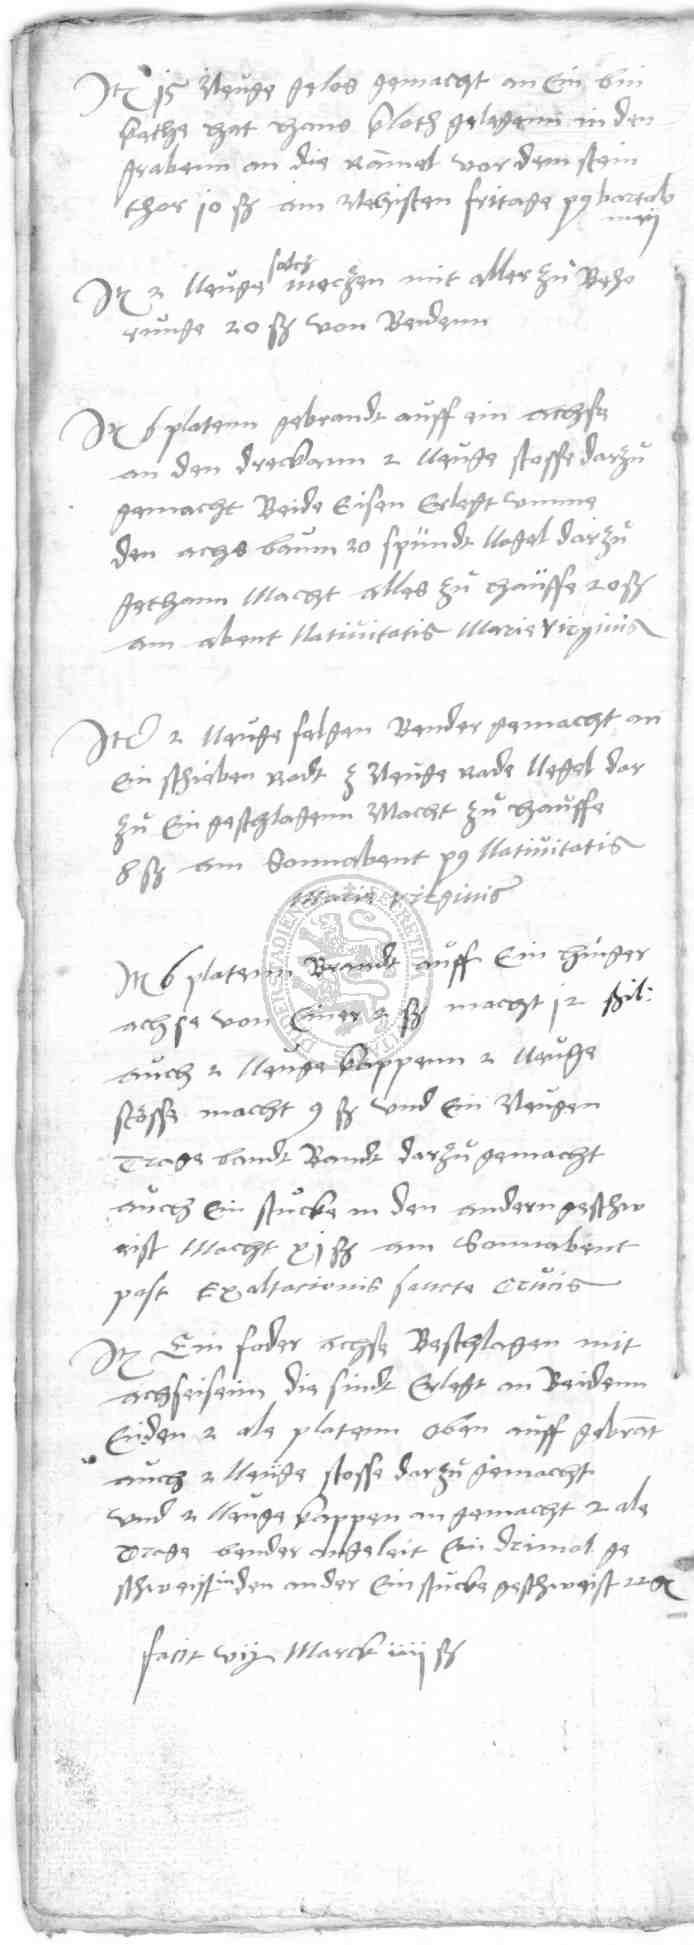 Itz 15 Neuge gelos gemacht an Ein bin
kathe hat hans kloth gelegenn in den
grabenn an die ramel vor dem stein
thor 10 ß am Nehisten fritage p9 bartol
meij
Itz 2 Neuge salch meczen mit aller zu Beho
runge 20 ß von Beidenn
Itz 6 platenn gebrandt auff ein achse
an den dreckarnn 2 Neuge stosse darzu
gemacht Beide Eisen Erlegt vmme
den achs baum 20 spündt Nagel darzu
gethann Macht alles zu hauffe 20 ß
am abent Natiuitatis Marie virginis
Itz 2 Neuge felgen Bender gemacht an
Ein schieben Radt 3 Neuge Rade Negel dar
zu Ein geschlagenn Macht zu hauffe
8 ß am Sonnabent p9 Natiuitatis
Marie virginis
Itz 6 platenn Brandt auff Ein hinger
achse von Einer 2 ß macht 12 ßil:
auch 2 Neuge kappenn 2 Neuge
stösse macht 9 ß vnd Ein Neugen
Trage bandt Bandt darzu gemacht
auch Ein stucke in den andern geschw
eist Macht xj ß am Sonnabent
post Exaltacionis sancte Crucis
Itz Ein foder achse Beschlagen mit
achseisenn die sindt Erlegt an Beidenn
Enden 2 ale platenn oben auff gebrāt
auch 2 Neuge stosse darzu gemacht
vnd 2 Neuge kappen an gemacht 2 ale
Trage bender angeleit Ein drimol ge
schweist in den ander Ein stucke geschweist 22 ß
facit vij Marck iiij ß